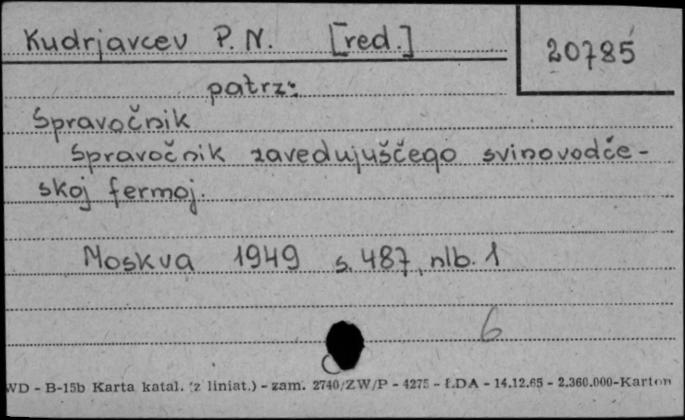 Kudrjavcev P. N. [red.]
20785
patrz:
Spravočnik
Spravočnik zavedujuščego svinovodče-
skoj fermoj.
Moskva 1949 s. 487, nlb. 1
6
WD - B-15b Karta katal. (z liniat.) - zam. 2740/ZW/P - 4275 - ŁDA - 14.12.65 - 2.360.000-Karton